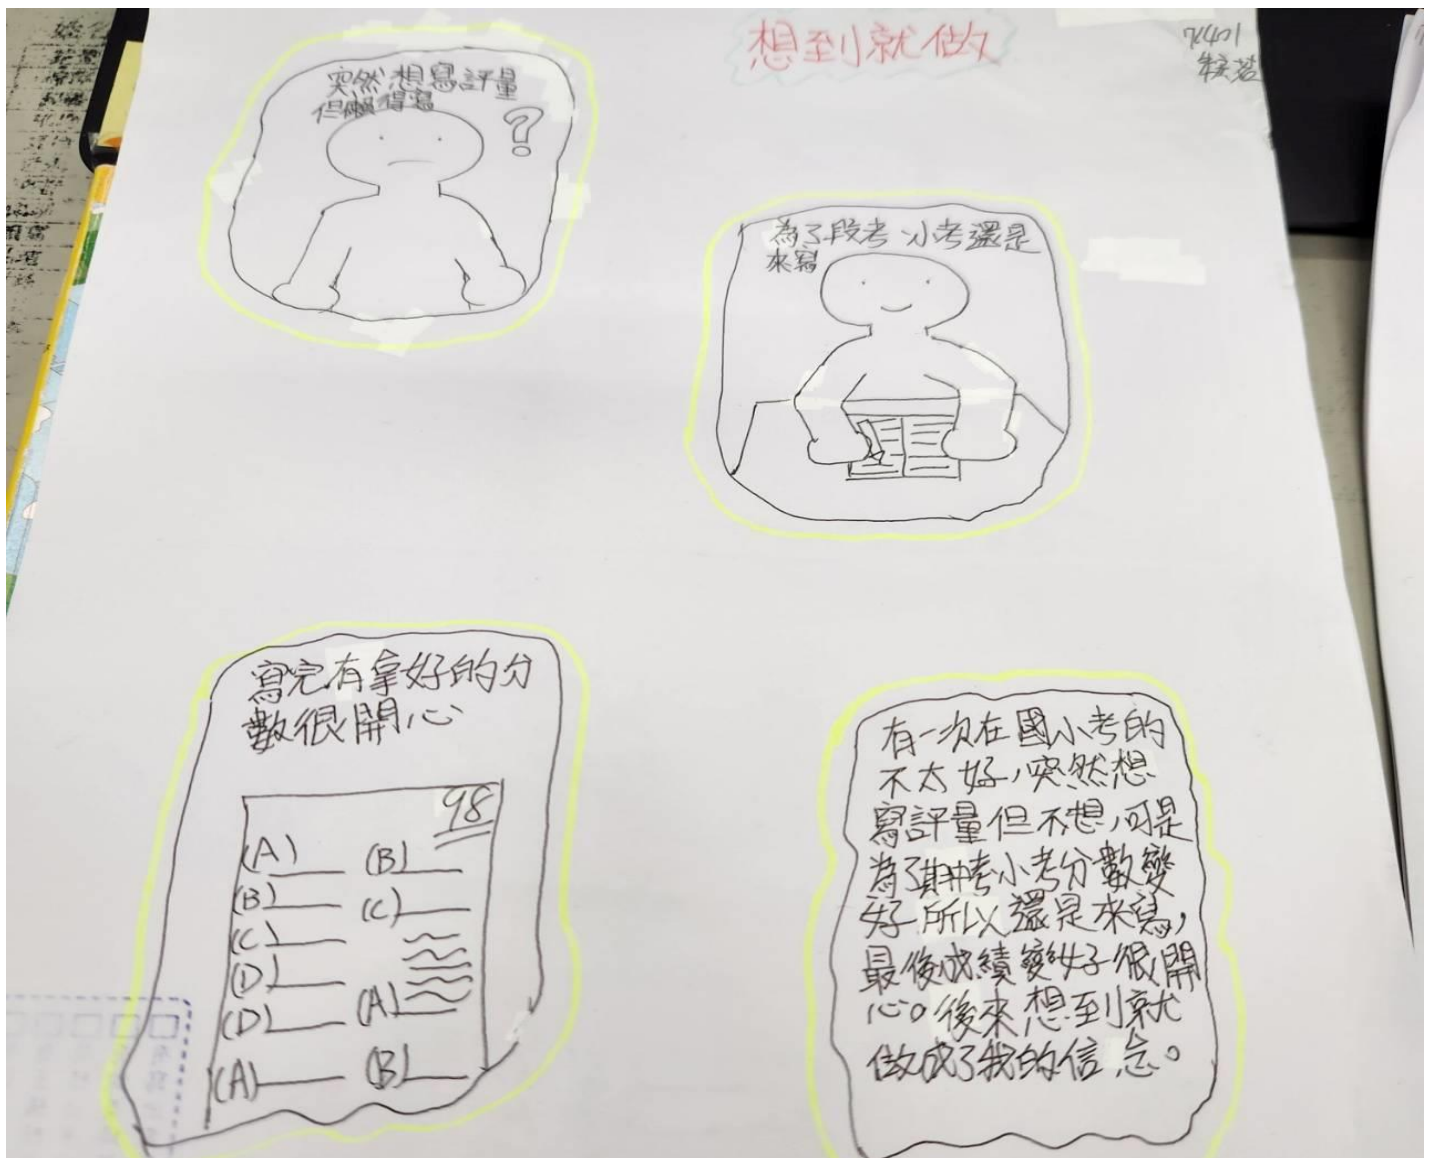 想到就做
突然想寫評量
但懶得寫
?
為了段考小考還是
來寫
寫完有拿好的分
數很開心
98
(A) (B)
(B) (C)
(C)
(D)
(D) (A)
(A) (B)
有一次在國小考的
不太好,突然想
寫評量但不想,可是
為了期中考小考分數變
好所以還是來寫,
最後成績變好很開
心。後來想到就
做成了我的信念。